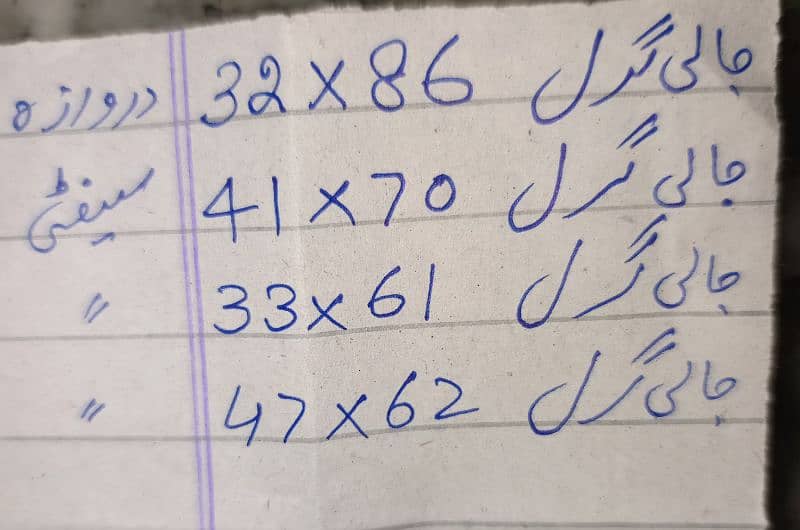 جالی گرل 32 x 86 دروازہ
جالی گرل 41 x 70 سیفٹی
جالی گرل 33 x 61 〃
جالی گرل 47 x 62 〃